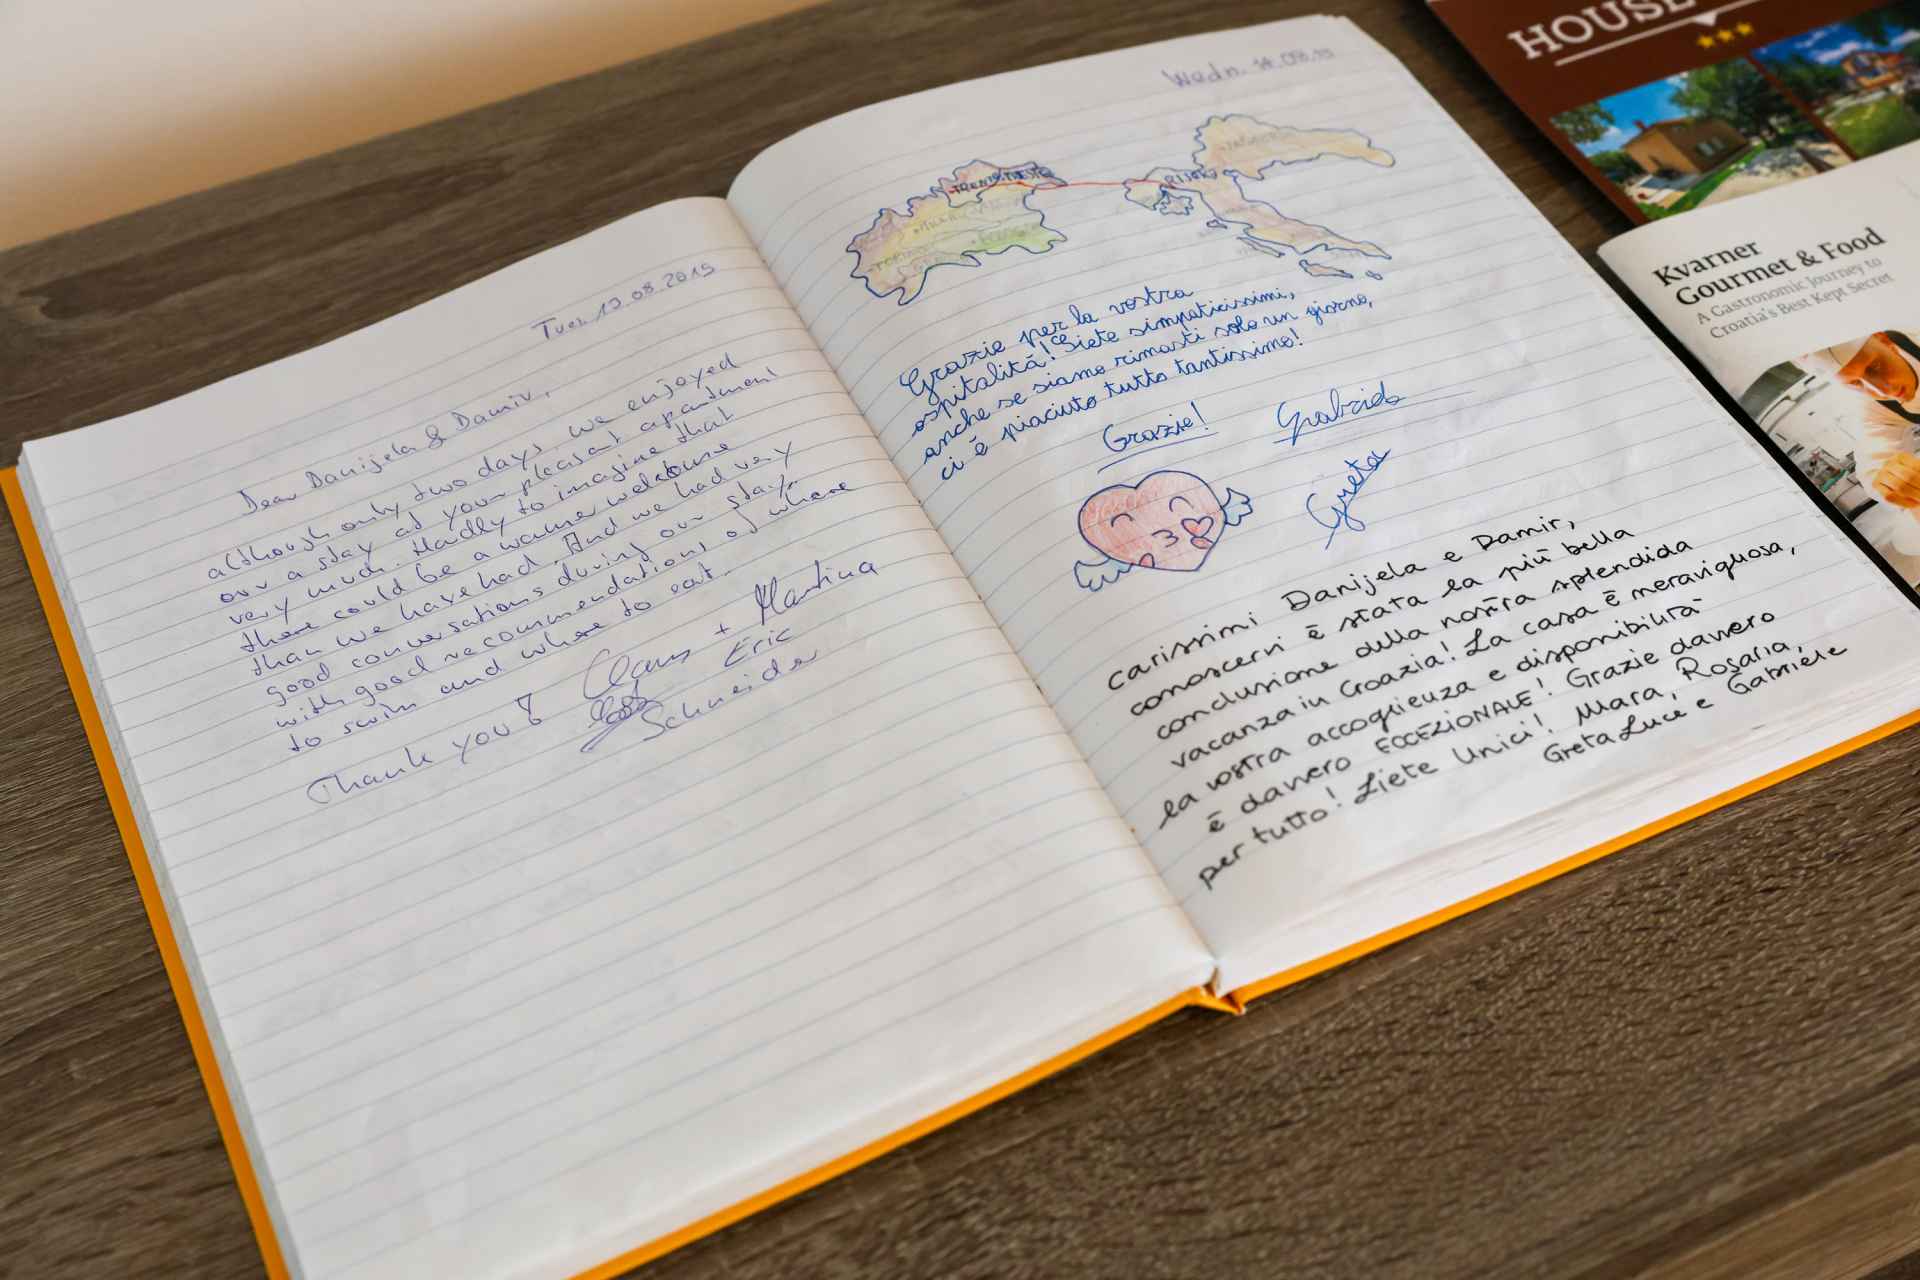 Tues 13.08.2019
Dear Danijela & Damir,
although only two days we enjoyed
our a stay at your pleasant apartment
very much. Hardly to imagine that
there could be a warmer welcome
than we have had. And we had very
good conversations during our stay,
with good recommendations of where
to swim and where to eat.
Thank you! Claus + Martina
Eric
Schneider
Wedn. 14.08.19
TRIESTE
RISIKA
ZAGABRIA
Grazie per la vostra
ospitalità! Siete simpaticissimi,
anche se siamo rimasti solo un giorno,
ci è piaciuto tutto tantissimo!
Grazie! Gabriele
Greta
carissimi Danijela e Damir,
conoscervi è stata la più bella
conclusione della nostra splendida
vacanza in Croazia! La casa è meravigliosa,
la vostra accoglienza e disponibilità
è davvero ECCEZIONALE! Grazie davvero
per tutto! Siete Unici! Mara, Rosaria,
Greta Luce e Gabriele
HOUSE
Kvarner
Gourmet & Food
A Gastronomic Journey to
Croatia's Best Kept Secret